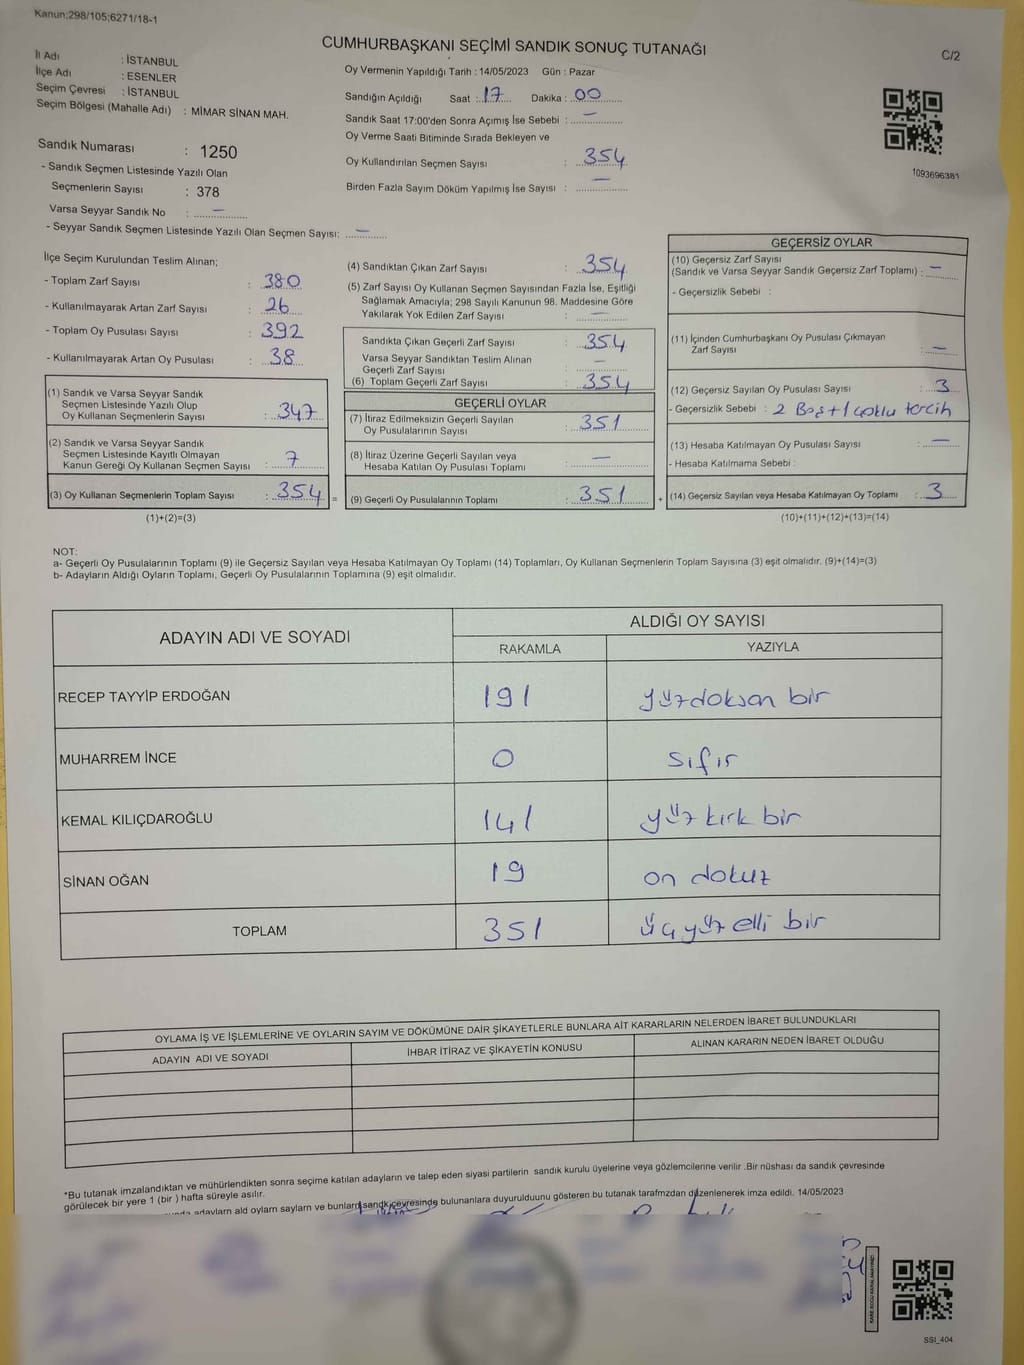 Kanun;298/105;6271/18-1
CUMHURBAŞKANI SEÇİMİ SANDIK SONUÇ TUTANAĞI
C/2
İl Adı : İSTANBUL
İlçe Adı : ESENLER
Seçim Çevresi : İSTANBUL
Seçim Bölgesi (Mahalle Adı) : MİMAR SİNAN MAH.
Oy Vermenin Yapıldığı Tarih : 14/05/2023 Gün : Pazar
Sandığın Açıldığı Saat : 17 Dakika : 00
Sandık Saat 17:00'den Sonra Açımış İse Sebebi : —
Oy Verme Saati Bitiminde Sırada Bekleyen ve
Oy Kullandırılan Seçmen Sayısı : 354
Birden Fazla Sayım Döküm Yapılmış İse Sayısı : —
1093696381
Sandık Numarası : 1250
- Sandık Seçmen Listesinde Yazılı Olan
Seçmenlerin Sayısı : 378
Varsa Seyyar Sandık No : —
- Seyyar Sandık Seçmen Listesinde Yazılı Olan Seçmen Sayısı: —
İlçe Seçim Kurulundan Teslim Alınan;
- Toplam Zarf Sayısı : 380
- Kullanılmayarak Artan Zarf Sayısı : 26
- Toplam Oy Pusulası Sayısı : 392
- Kullanılmayarak Artan Oy Pusulası : 38
(1) Sandık ve Varsa Seyyar Sandık
Seçmen Listesinde Yazılı Olup
Oy Kullanan Seçmenlerin Sayısı : 347
(2) Sandık ve Varsa Seyyar Sandık
Seçmen Listesinde Kayıtlı Olmayan
Kanun Gereği Oy Kullanan Seçmen Sayısı : 7
(3) Oy Kullanan Seçmenlerin Toplam Sayısı : 354 =
(1)+(2)=(3)
(4) Sandıktan Çıkan Zarf Sayısı : 354
(5) Zarf Sayısı Oy Kullanan Seçmen Sayısından Fazla İse, Eşitliği
Sağlamak Amacıyla; 298 Sayılı Kanunun 98. Maddesine Göre
Yakılarak Yok Edilen Zarf Sayısı : —
Sandıkta Çıkan Geçerli Zarf Sayısı : 354
Varsa Seyyar Sandıktan Teslim Alınan
Geçerli Zarf Sayısı : —
(6) Toplam Geçerli Zarf Sayısı : 354
GEÇERLİ OYLAR
(7) İtiraz Edilmeksizin Geçerli Sayılan
Oy Pusulalarının Sayısı : 351
(8) İtiraz Üzerine Geçerli Sayılan veya
Hesaba Katılan Oy Pusulası Toplamı : —
(9) Geçerli Oy Pusulalarının Toplamı : 351 +
GEÇERSİZ OYLAR
(10) Geçersiz Zarf Sayısı
(Sandık ve Varsa Seyyar Sandık Geçersiz Zarf Toplamı) : —
- Geçersizlik Sebebi :
(11) İçinden Cumhurbaşkanı Oy Pusulası Çıkmayan
Zarf Sayısı : —
(12) Geçersiz Sayılan Oy Pusulası Sayısı : 3
- Geçersizlik Sebebi : 2 Boş+1 çoklu tercih
(13) Hesaba Katılmayan Oy Pusulası Sayısı : —
- Hesaba Katılmama Sebebi :
(14) Geçersiz Sayılan veya Hesaba Katılmayan Oy Toplamı : 3
(10)+(11)+(12)+(13)=(14)
NOT:
a- Geçerli Oy Pusulalarının Toplamı (9) ile Geçersiz Sayılan veya Hesaba Katılmayan Oy Toplamı (14) Toplamları, Oy Kullanan Seçmenlerin Toplam Sayısına (3) eşit olmalıdır. (9)+(14)=(3)
b- Adayların Aldığı Oyların Toplamı, Geçerli Oy Pusulalarının Toplamına (9) eşit olmalıdır.
ADAYIN ADI VE SOYADI ALDIĞI OY SAYISI
RAKAMLA YAZIYLA
RECEP TAYYİP ERDOĞAN 191 yüzdoksan bir
MUHARREM İNCE 0 sıfır
KEMAL KILIÇDAROĞLU 141 yüz kırk bir
SİNAN OĞAN 19 on dokuz
TOPLAM 351 üçyüz elli bir
OYLAMA İŞ VE İŞLEMLERİNE VE OYLARIN SAYIM VE DÖKÜMÜNE DAİR ŞİKAYETLERLE BUNLARA AİT KARARLARIN NELERDEN İBARET BULUNDUKLARI
ADAYIN ADI VE SOYADI İHBAR İTİRAZ VE ŞİKAYETİN KONUSU ALINAN KARARIN NEDEN İBARET OLDUĞU
*Bu tutanak imzalandıktan ve mühürlendikten sonra seçime katılan adayların ve talep eden siyasi partilerin sandık kurulu üyelerine veya gözlemcilerine verilir .Bir nüshası da sandık çevresinde
görülecek bir yere 1 (bir ) hafta süreyle asılır.
adayların ald oyların sayların ve bunların sandık çevresinde bulunanlara duyurulduunu gösteren bu tutanak tarafmzdan düzenlenerek imza edildi. 14/05/2023
SSI_404